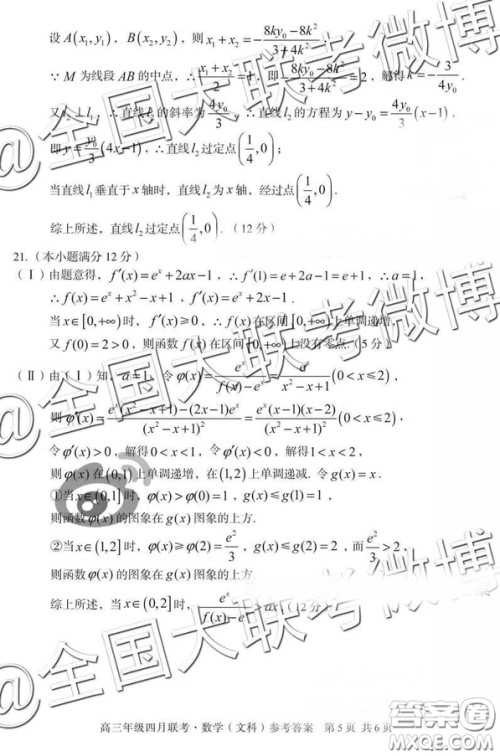 设 A(x₁,y₁)，B(x₂,y₂)，则 x₁+x₂=-(8ky₀-8k²)/(3+4k²)
∵ M 为线段 AB 的中点，∴(x₁+x₂)/2=1，即 -(8ky₀-8k²)/(3+4k²)=2，解得 k=-3/(4y₀)
∴直线 l₂ 的斜率为 4y₀/3，∴直线 l₂ 的方程为 y-y₀=(4y₀/3)(x-1).
即 y=(y₀/3)(4x-1)，∴直线 l₂ 过定点(1/4,0)；
当直线 l₁ 垂直于 x 轴时，直线 l₂ 为 x 轴，经过点(1/4,0).
综上所述，直线 l₂ 过定点(1/4,0).（12 分）
21.（本小题满分 12 分）
（Ⅰ）由题意得，f′(x)=eˣ+2ax-1，∴f′(1)=e+2a-1=e+1，∴a=1，
∴f(x)=eˣ+x²-x+1，∴f′(x)=eˣ+2x-1.
当 x∈[0,+∞) 时，f′(x)≥0，∴f(x)在区间[0,+∞)上单调递增，
又 f(0)=2>0，则函数 f(x)在区间[0,+∞)上没有零点.（5 分）
（Ⅱ）由（Ⅰ）知，a=1，令 φ(x)=eˣ/(f(x)-eˣ)=eˣ/(x²-x+1)(0<x≤2)，
则 φ′(x)=(eˣ(x²-x+1)-(2x-1)eˣ)/(x²-x+1)²=eˣ(x-1)(x-2)/(x²-x+1)²(0<x≤2)，
令 φ′(x)>0，解得0<x<1，令 φ′(x)<0，解得1<x<2，
则 φ(x)在(0,1)上单调递增，在(1,2)上单调递减. 令 g(x)=x
①当 x∈(0,1] 时，φ(x)>φ(0)=1，g(x)≤g(1)=1，
则函数 φ(x)的图象在 g(x)图象的上方.
②当 x∈(1,2] 时，φ(x)≥φ(2)=e²/3，g(x)≤g(2)=2，而 e²/3>2，
则函数 φ(x)的图象在 g(x)图象的上方
综上所述，当 x∈(0,2] 时，eˣ/(f(x)-eˣ)>ax.（12 分）
高三年级四月联考·数学（文科）参考答案 第 5 页 共 6 页
@全国大联考微博
@全国大联考微博
@全国大联考微博